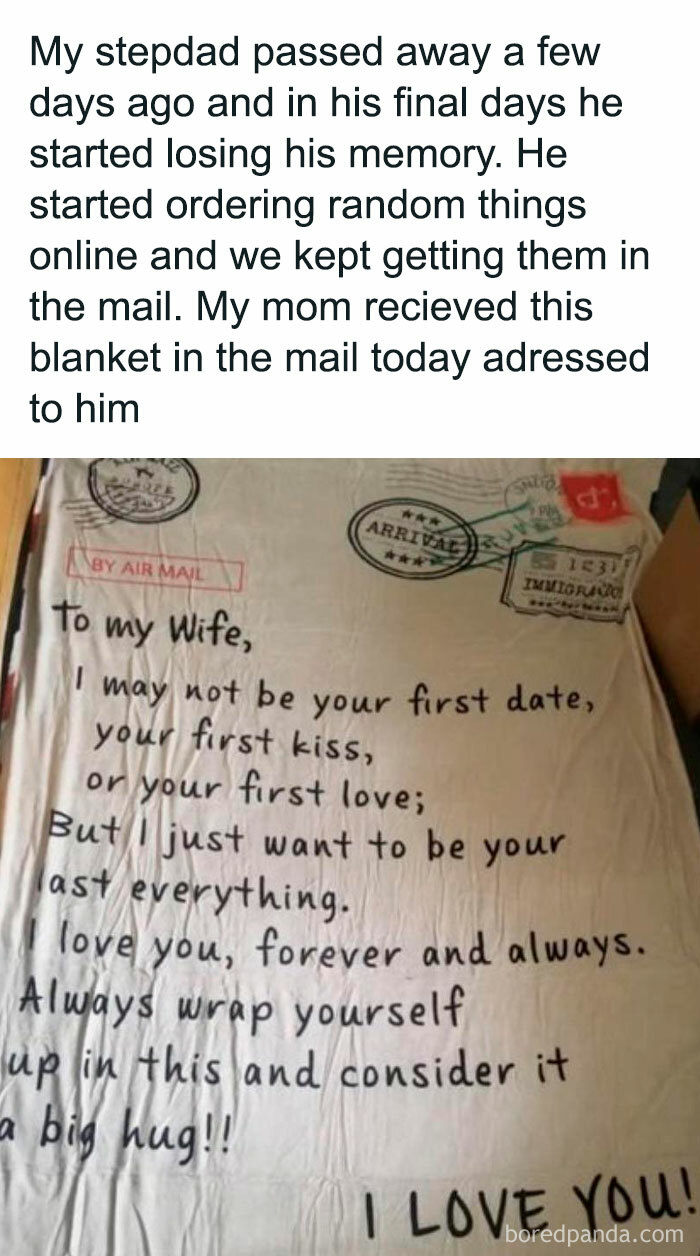 My stepdad passed away a few
days ago and in his final days he
started losing his memory. He
started ordering random things
online and we kept getting them in
the mail. My mom recieved this
blanket in the mail today adressed
to him
ARRIVAL
BY AIR MAIL
To my Wife,
I may not be your first date,
your first kiss,
or your first love;
But I just want to be your
last everything.
I love you, forever and always.
Always wrap yourself
up in this and consider it
a big hug!!
I LOVE YOU!
boredpanda.com